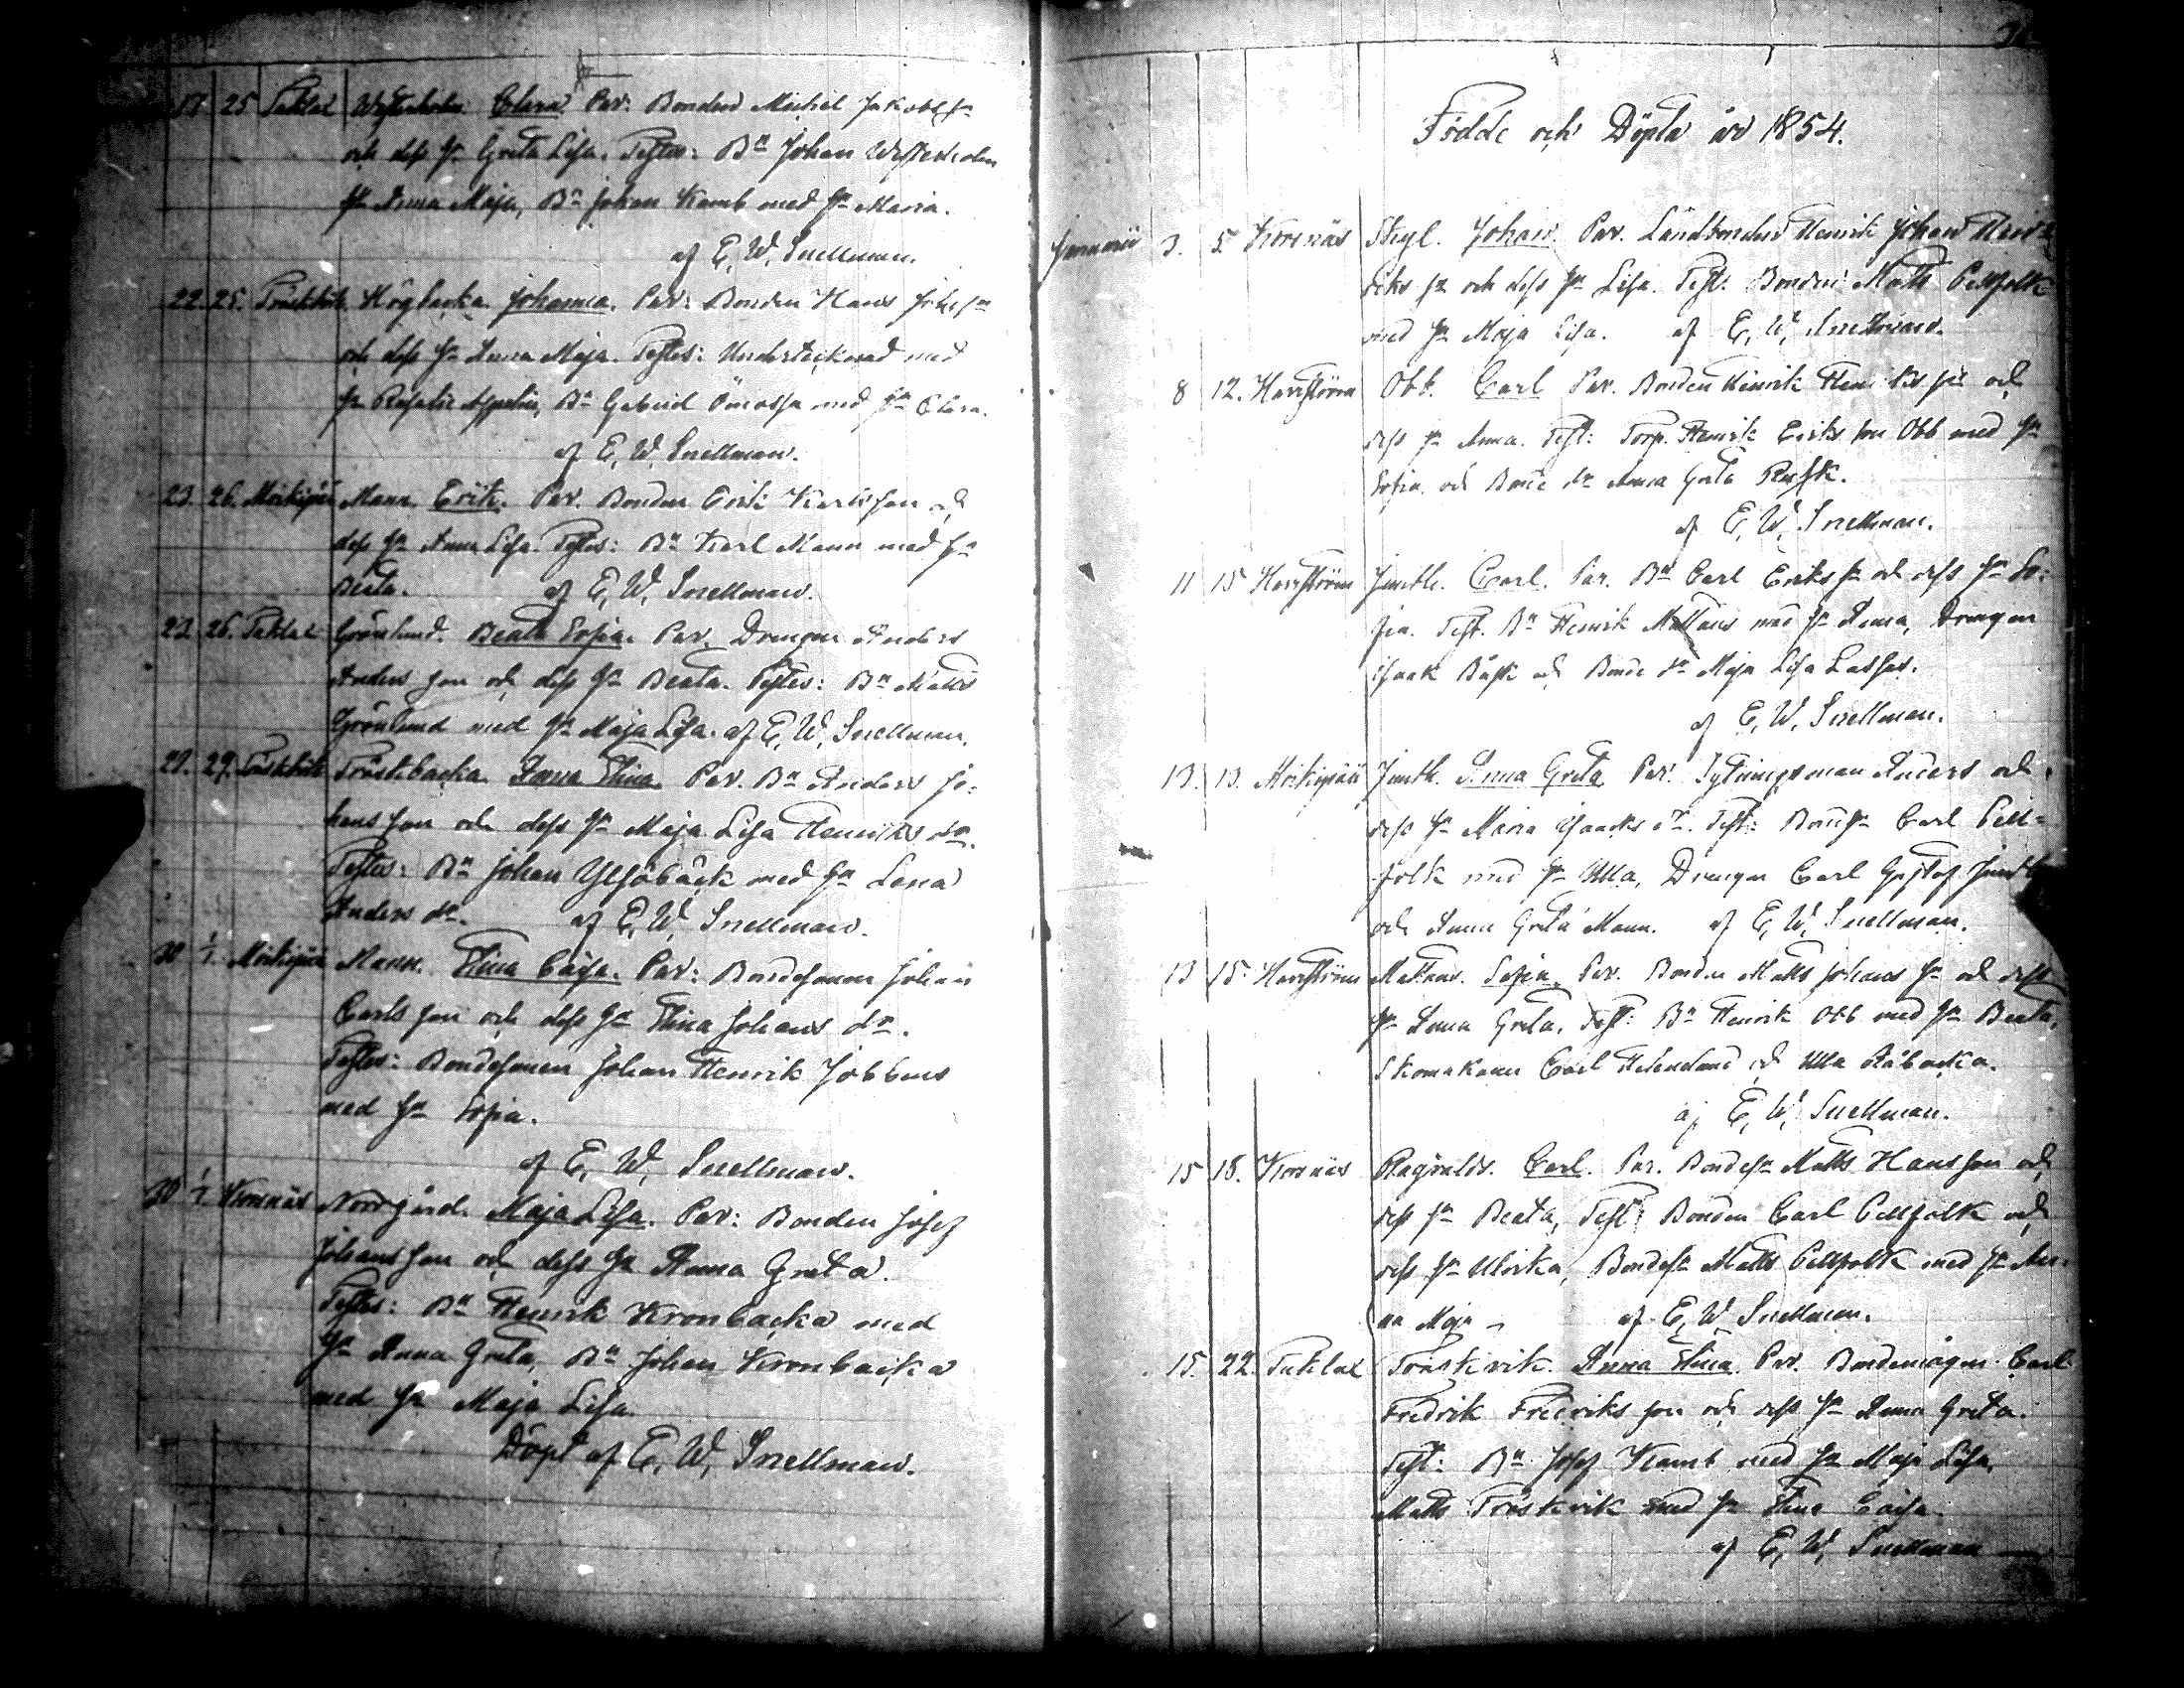 17 25 Taklax Westerholm. Clara. Par: Bonden Michel Jakobs sn
och dess h. Greta Lisa. Testes: Bn Johan Westerholm
h. Anna Maja, Bn Johan Kamb med h. Maria.
af E. W. Snellman.
22. 25. Högbacka. Johanna. Par: Bonden Hans Johs sn
och dess h. Anna Maja. Testes: Undertecknad med
h. Rosalie, Bn Gabriel med h. Clara.
af E. W. Snellman.
23. 26. Mann. Erik. Par. Bonden Erik Karlsson och
dess h. Anna Lisa. Testes: Bn Karl Mann med h.
Beata. af E. W. Snellman.
23. 26. Taklax Grönlund. Beata Sofia. Par. Drengen Anders
Anders son och dess h. Beata. Testes: Bn Matts
Grönlund med h. Maja Lisa. af E. W. Snellman.
29. Träskbacka. Anna Stina. Par. Bn Anders Jo-
hans son och dess h. Maja Lisa Henriks dr.
Testes: Bn Johan Ylhöbäck med h. Lena
Anders dr. af E. W. Snellman.
30 1/1 Mann. Stina Caisa. Par: Bondesonen Johan
Carls son och dess h. Stina Johans dr.
Testes: Bondesonen Johan Henrik Jobbens
med h. Sofia.
af E. W. Snellman.
30 1/1 Korsnäs Norrgård. Maja Lisa. Par: Bonden Josef
Johans son och dess h. Anna Greta.
Testes: Bn Henrik Kronbacka med
h. Anna Greta, Bn Johan Kronbacka
med h. Maja Lisa
Döpt af E. W. Snellman.
Födde och Döpta år 1854.
Januarii 3. 5 Korsnäs Skyl. Johan. Par. Landbonden Henrik Johan Hen-
riks sn och dess h. Lisa. Test: Bonden Matts Pellfolk
med h. Maja Lisa. af E. W. Snellman.
8 12. Harrström Obb. Carl Par. Bonden Henrik Henriks son och
dess h. Anna. Test: Torp. Henrik Eriks son Obb med h.
Sofia och Bonde dr Anna Greta Rusk.
af E. W. Snellman.
11 15 Harrström Junth. Carl. Par. Bn Carl Eriks sn och dess h. So-
fia. Test. Bn Henrik Mattans med h. Anna, Drengen
Isaak Bäck och Bonde dr Maja Lisa Lassas.
af E. W. Snellman.
13. 13. Junth. Anna Greta Par. Sytningsman Anders och
dess h. Maria Isaacks dr. Test: Bondesn Carl Pell-
folk med h. Ulla, Drengen Carl Gustaf Junth
och Anna Greta Mann. af E. W. Snellman.
13 15. Harrström Mattans. Sofia. Par. Bonden Matts Johans sn och dess
h. Anna Greta. Test: Bn Henrik Obb med h. Beata,
Skomakaren Carl och Ulla Råbacka.
af E. W. Snellman.
15 18. Korsnäs Ragvalds. Carl. Par. Bondesn Matts Hans son och
dess h. Beata, Test: Bonden Carl Pellfolk och
dess h. Ulrika, Bondesn Matts Pellfolk med h. An-
na Maja af E. W. Snellman.
15. 22. Taklax Träskvik. Anna Stina. Par. Bondemågen Carl
Fredrik Fredriks son och dess h. Anna Greta.
Test: Bn Josef Kamb med h. Maja Lisa,
Matts Träskvik med h. Stina Caisa.
af E. W. Snellman